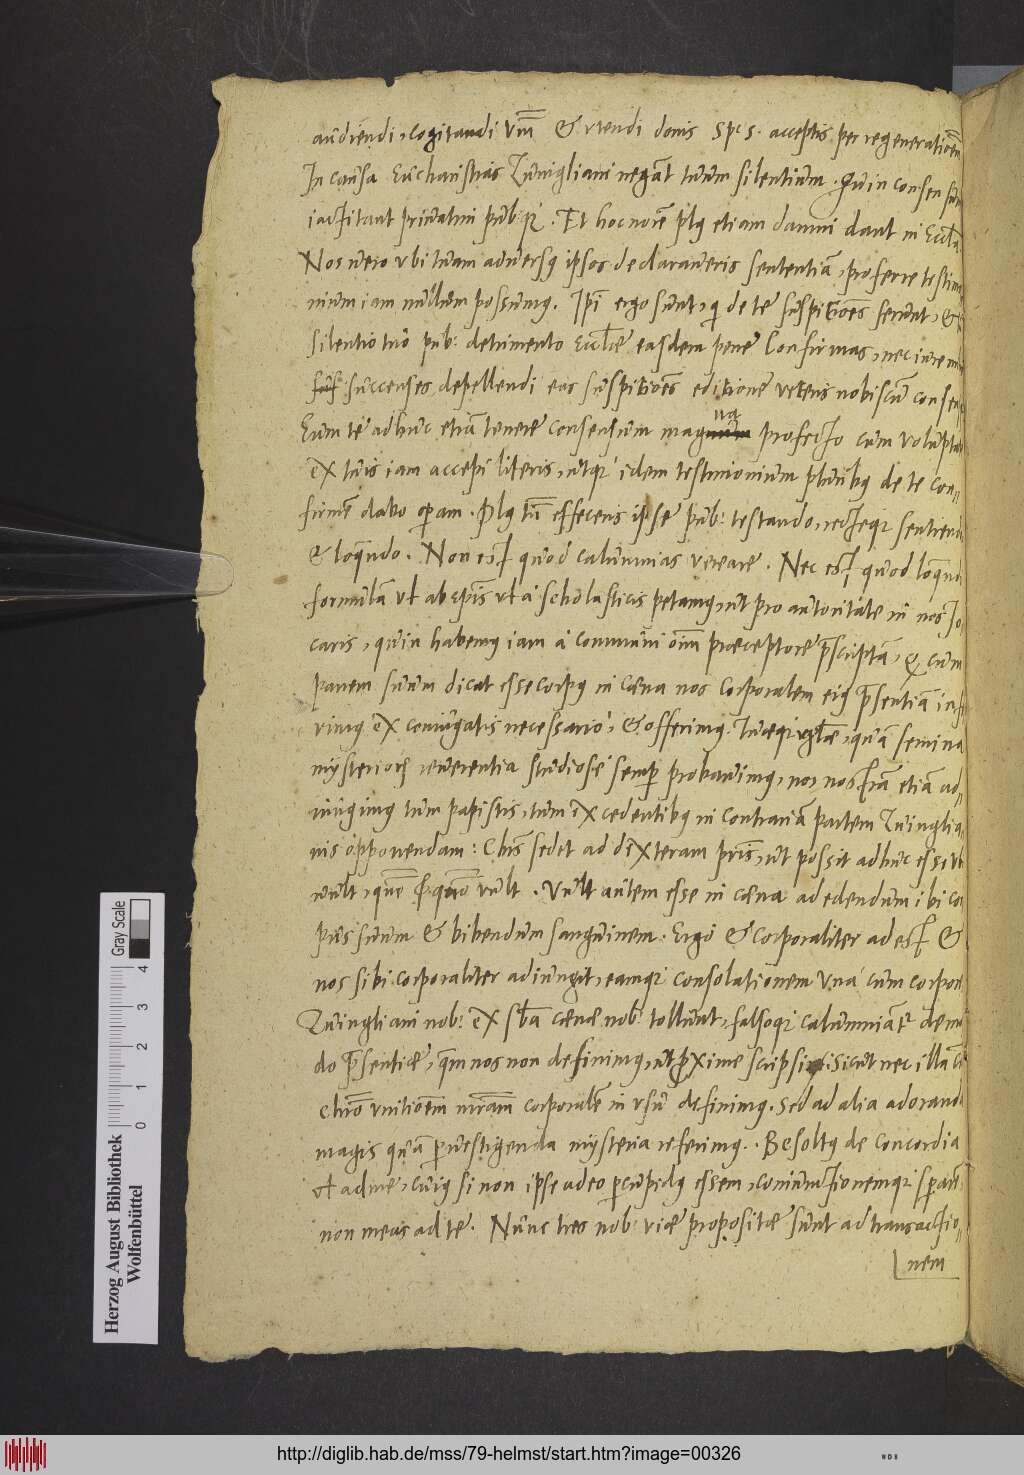 audiendi, cogitandi vim & vtendi donis sps s. acceptis per regenerationem
In causa Eucharistias Zuingliani negat tuum silentium. Quin consensum
iactitant priuatim pub: qz. Et hoc nore plus etiam damni dant in Eccla
Nos uero ubi tuam aduersus ipsos declaraueris sententia, proferre testimo
nium iam nullum possumus. Ipi ergo sunt, q de te suspitioes serunt, &
silentio tuo pub: detrimento Ecclae easdem pene Confirmas, nec iure
succenses depellendi eas suspitioes editione veteris nobiscu consen
Eum te adhuc etia tenere consensum magna profecto cum voluptate
ex tuis iam accepi literis, utqz idem testimonium pluribus de te con-
firme dabo opam. Plus tn effeceris ipse pub: testando, recteqz sentiendo
& loquendo. Non est quod calumnias vereare. Nec est quod loquendi
formulam vt ab epis vt a scholasticis petamus, ut pro autoritate in nos Io
caris, quin habemus iam a communi oim praeceptore pscripta, & cum
panem suum dicat esse corpus in caena nos corporalem eius psentiam infe
rimus ex coniugatis necessario, & offerimus. Tuaeqz reglae, qua semina
mysteriorum reuerentia studiose semper probauimus, nos nostram etiam ad-
iungimus tum papistis, tum excedentibus in contrariam partem Zuinglia
nis opponendam: Chrs sedet ad dexteram pris, ut possit adhuc esse vbi
uult, quo & quomo vult. Vult autem esse in caena ad edendum ibi cor
pus suum & bibendum sanguinem. Ergo & corporaliter adest &
nos sibi corporaliter adiungit, eamqz consolationem una cum corpore
Zuingliani nob: ex sba caenae nob: tollunt, falsoqz calumniantr de mo
do psentiae, quem nos non definimus, ut pxime scripsi. Sicut nec illa cu
Chro vnitioem nram corporale in vsu definimus. Sed ad alia adoranda
magis qua puestigenda mysteria referimus. Besoltus de concordia
vt ad me, cuius si non ipse adeo percupidus essem, coniunctionemqz sperare
non meas ad te. Nunc tres nob: viae propositae sunt ad transactio-
nem
Herzog August Bibliothek
Wolfenbüttel
Gray Scale
0 1 2 3 4
http://diglib.hab.de/mss/79-helmst/start.htm?image=00326
WDB